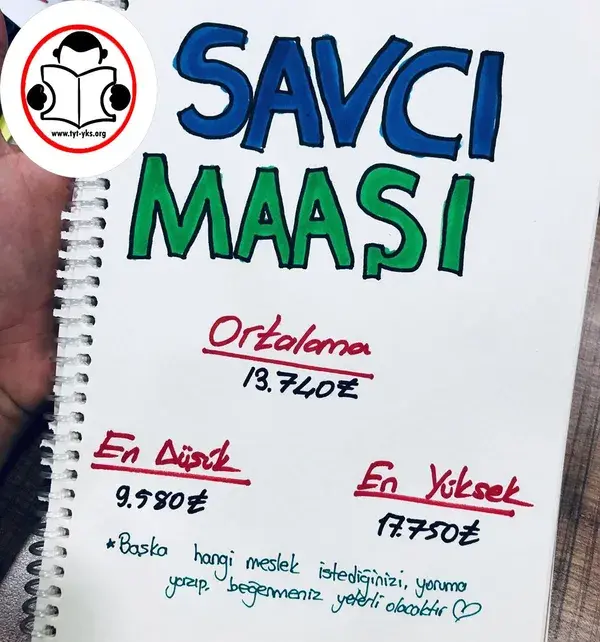 www.tyt-yks.org
SAVCI
MAAŞI
Ortalama
13.740₺
En Düşük
9.580₺
En Yüksek
17.750₺
*Başka hangi meslek istediğinizi, yoruma
yazıp, beğenmeniz yeterli olacaktır ♡